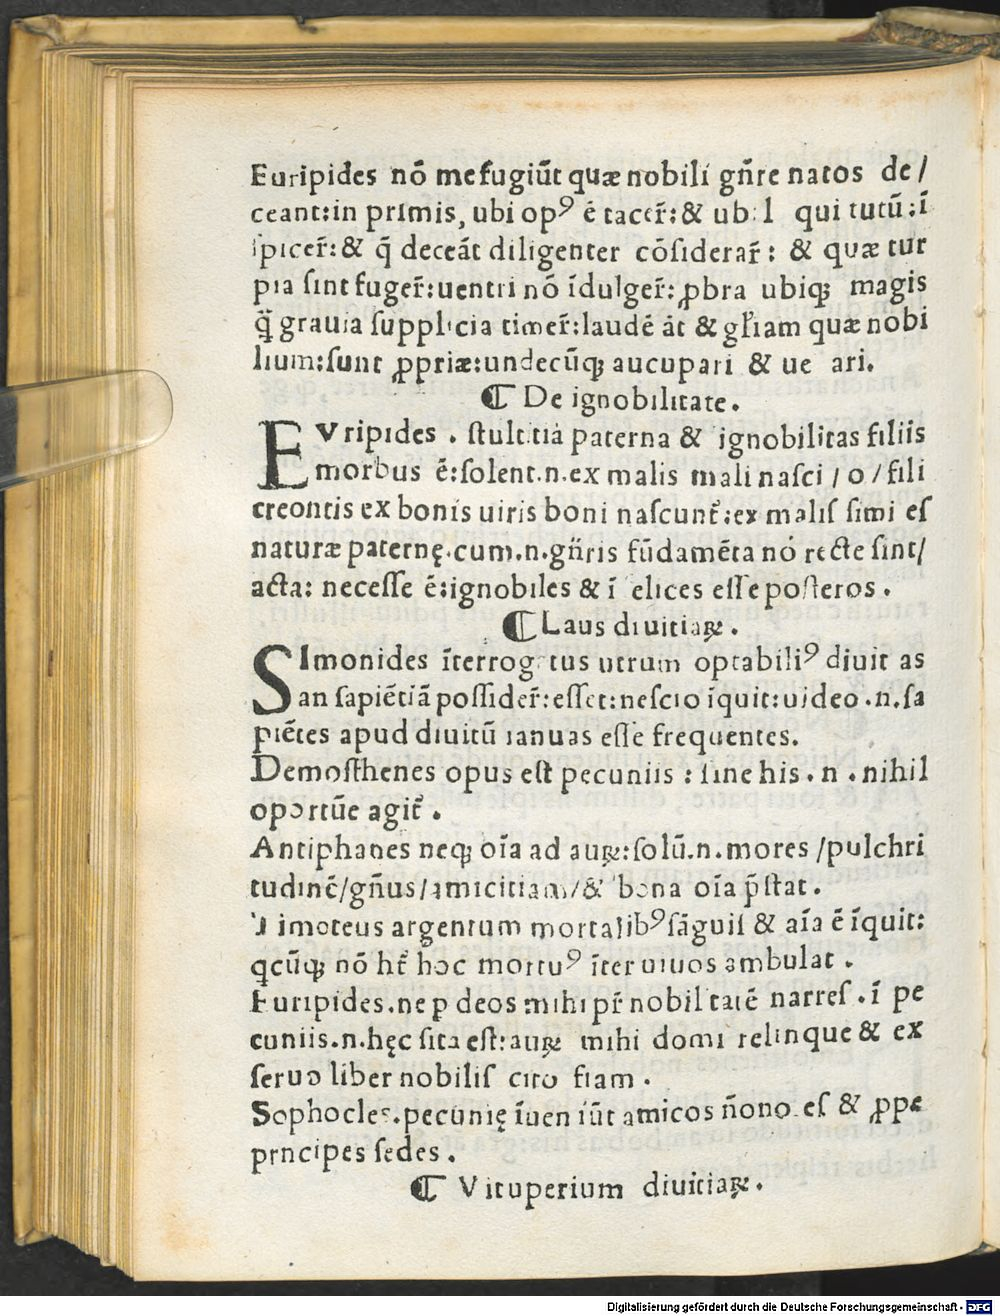 Euripides nō me fugiūt quæ nobili gn̄re natos de/
ceant:in primis, ubi opꝰ ē tacer̄:& ubi l qui tutū:ī
ſpicer̄:& q̄ deceāt diligenter cōſiderar̄: & quæ tur
pia ſint fuger̄:uentri nō īdulger̄:ꝓbra ubiqꝫ magis
q̄ grauia ſupplicia timer̄:laudē āt & gl̄iam quæ nobi
lium:ſunt ꝓpriæ:undecūqꝫ aucupari & ue ari.
⁋ De ignobilitate.
EVripides . ſtultitia paterna & ignobilitas filiis
morbus ē:ſolent.n.ex malis mali naſci / o / fili
creontis ex bonis uiris boni naſcunt̄:ex maliſ ſimi eſ
naturæ paternę.cum.n.gn̄ris fūdamēta nō recte ſint/
acta: neceſſe ē:ignobiles & ī elices eſſe poſteros .
⁋ Laus diuitiaꝝ .
SImonides īterrogatus utrum optabiliꝰ diuit as
an ſapiētiā poſſider̄:eſſet:neſcio īquit:uideo .n.ſa
piētes apud diuitū ianuas eſſe frequentes.
Demoſthenes opus eſt pecuniis : ſine his . n . nihil
oportūe agit̄ .
Antiphanes neqꝫ oīa ad auꝝ:ſolū.n.mores /pulchri
tudinē/gn̄us/amicitiam/& bona oīa p̄ſtat .
Timoteus argentum mortalibꝰ ſāguiſ & aīa ē īquit:
qcūqꝫ nō ht̄ hoc mortuꝰ īter uiuos ambulat .
Euripides.ne p deos mihi pr̄ nobil tatē narreſ . ī pe
cuniis.n.hęc ſita eſt:auꝝ mihi domi relinque & ex
ſeruo liber nobiliſ cito fiam .
Sophocles.pecunię īuen iūt amicos n̄ono eſ & ꝓpe
prncipes ſedes .
⁋ Vituperium diuitiaꝝ .
Digitalisierung gefördert durch die Deutsche Forschungsgemeinschaft - DFG